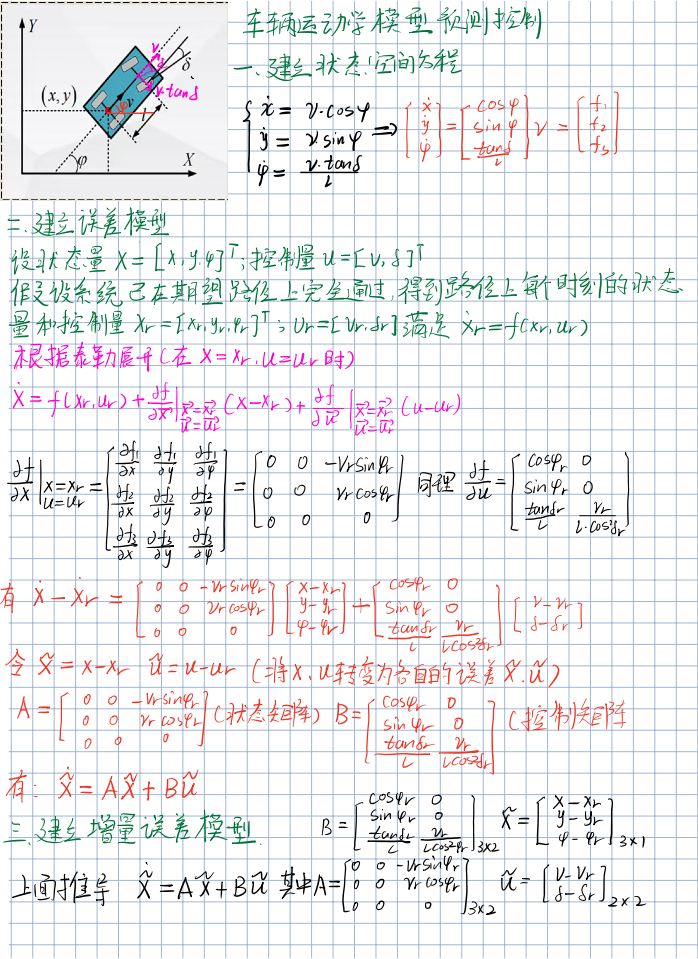 车辆运动学模型预测控制
一.建立状态空间方程
Y
(x,y)
v
δ
v·tanδ
φ
v
l
φ
X
{ ẋ = v·cosφ
ẏ = v·sinφ
φ̇ = v·tanδ/L
⇒ [ẋ ẏ φ̇] = [cosφ sinφ tanδ/L] v = [f₁ f₂ f₃]
二.建立误差模型
设状态量 X=[x,y,φ]ᵀ;控制量 u=[v,δ]ᵀ
假设系统已在期望路径上完全通过,得到路径上每个时刻的状态
量和控制量 Xr=[xr,yr,φr]ᵀ; Ur=[vr,δr]满足 ẋr=f(xr,ur)
根据泰勒展开(在 X=Xr,u=ur时)
Ẋ=f(xr,ur)+∂f/∂x|x⃗=x⃗r u⃗=u⃗r (x-xr)+∂f/∂u⃗|x⃗=x⃗r u⃗=u⃗r (u-ur)
∂f/∂x|x=xr u=ur = [∂f₁/∂x ∂f₁/∂y ∂f₁/∂φ; ∂f₂/∂x ∂f₂/∂y ∂f₂/∂φ; ∂f₃/∂x ∂f₃/∂y ∂f₃/∂φ] = [0 0 -vrsinφr; 0 0 vrcosφr; 0 0 0] 同理 ∂f/∂u = [cosφr 0; sinφr 0; tanδr/L vr/L·cos²δr]
有 ẋ-ẋr = [0 0 -vrsinφr; 0 0 vrcosφr; 0 0 0] [x-xr; y-yr; φ-φr] + [cosφr 0; sinφr 0; tanδr/L vr/Lcos²δr] [v-vr; δ-δr]
令 x̃=x-xr ũ=u-ur (将x、u转变为各自的误差x̃.ũ)
A=[0 0 -vrsinφr; 0 0 vrcosφr; 0 0 0](状态矩阵) B=[cosφr 0; sinφr 0; tanδr/L vr/Lcos²δr](控制矩阵
有: x̃̇=Ax̃+Bũ
三.建立增量误差模型.
B=[cosφr 0; sinφr 0; tanδr/L vr/Lcos²φr]3×2 x̃=[x-xr; y-yr; φ-φr]3×1
上面推导 x̃̇=Ax̃+Bũ 其中A=[0 0 -vrsinφr; 0 0 vrcosφr; 0 0 0]3×2 ũ=[v-vr; δ-δr]2×2